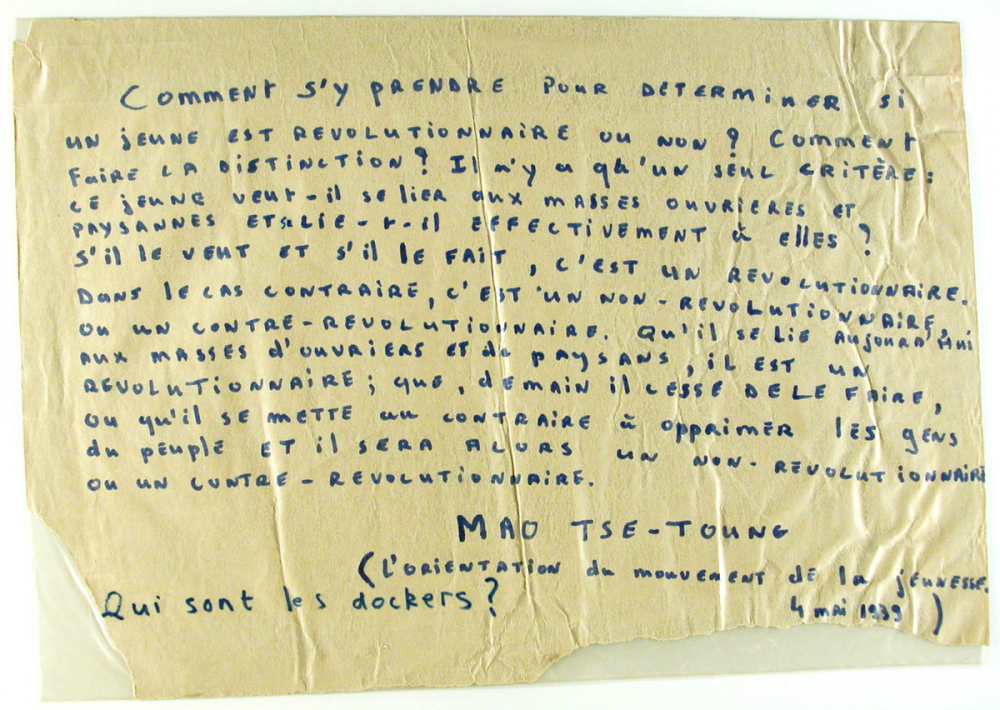 Comment s'y prendre pour determiner si
un jeune est revolutionnaire ou non ? Comment
faire la distinction ? Il n'y a qu'un seul critère :
ce jeune veut-il se lier aux masses ouvrieres et
paysannes et se lie-t-il effectivement à elles ?
S'il le veut et s'il le fait, c'est un revolutionnaire.
Dans le cas contraire, c'est un non-revolutionnaire,
ou un contre-revolutionnaire. Qu'il se lie aujourd'hui
aux masses d'ouvriers et de paysans, il est un
revolutionnaire ; que, demain il cesse de le faire,
ou qu'il se mette au contraire à opprimer les gens
du peuple et il sera alors un non-revolutionnaire
ou un contre-revolutionnaire.
MAO TSE-TOUNG
(L'orientation du mouvement de la jeunesse.
4 mai 1939)
Qui sont les dockers ?